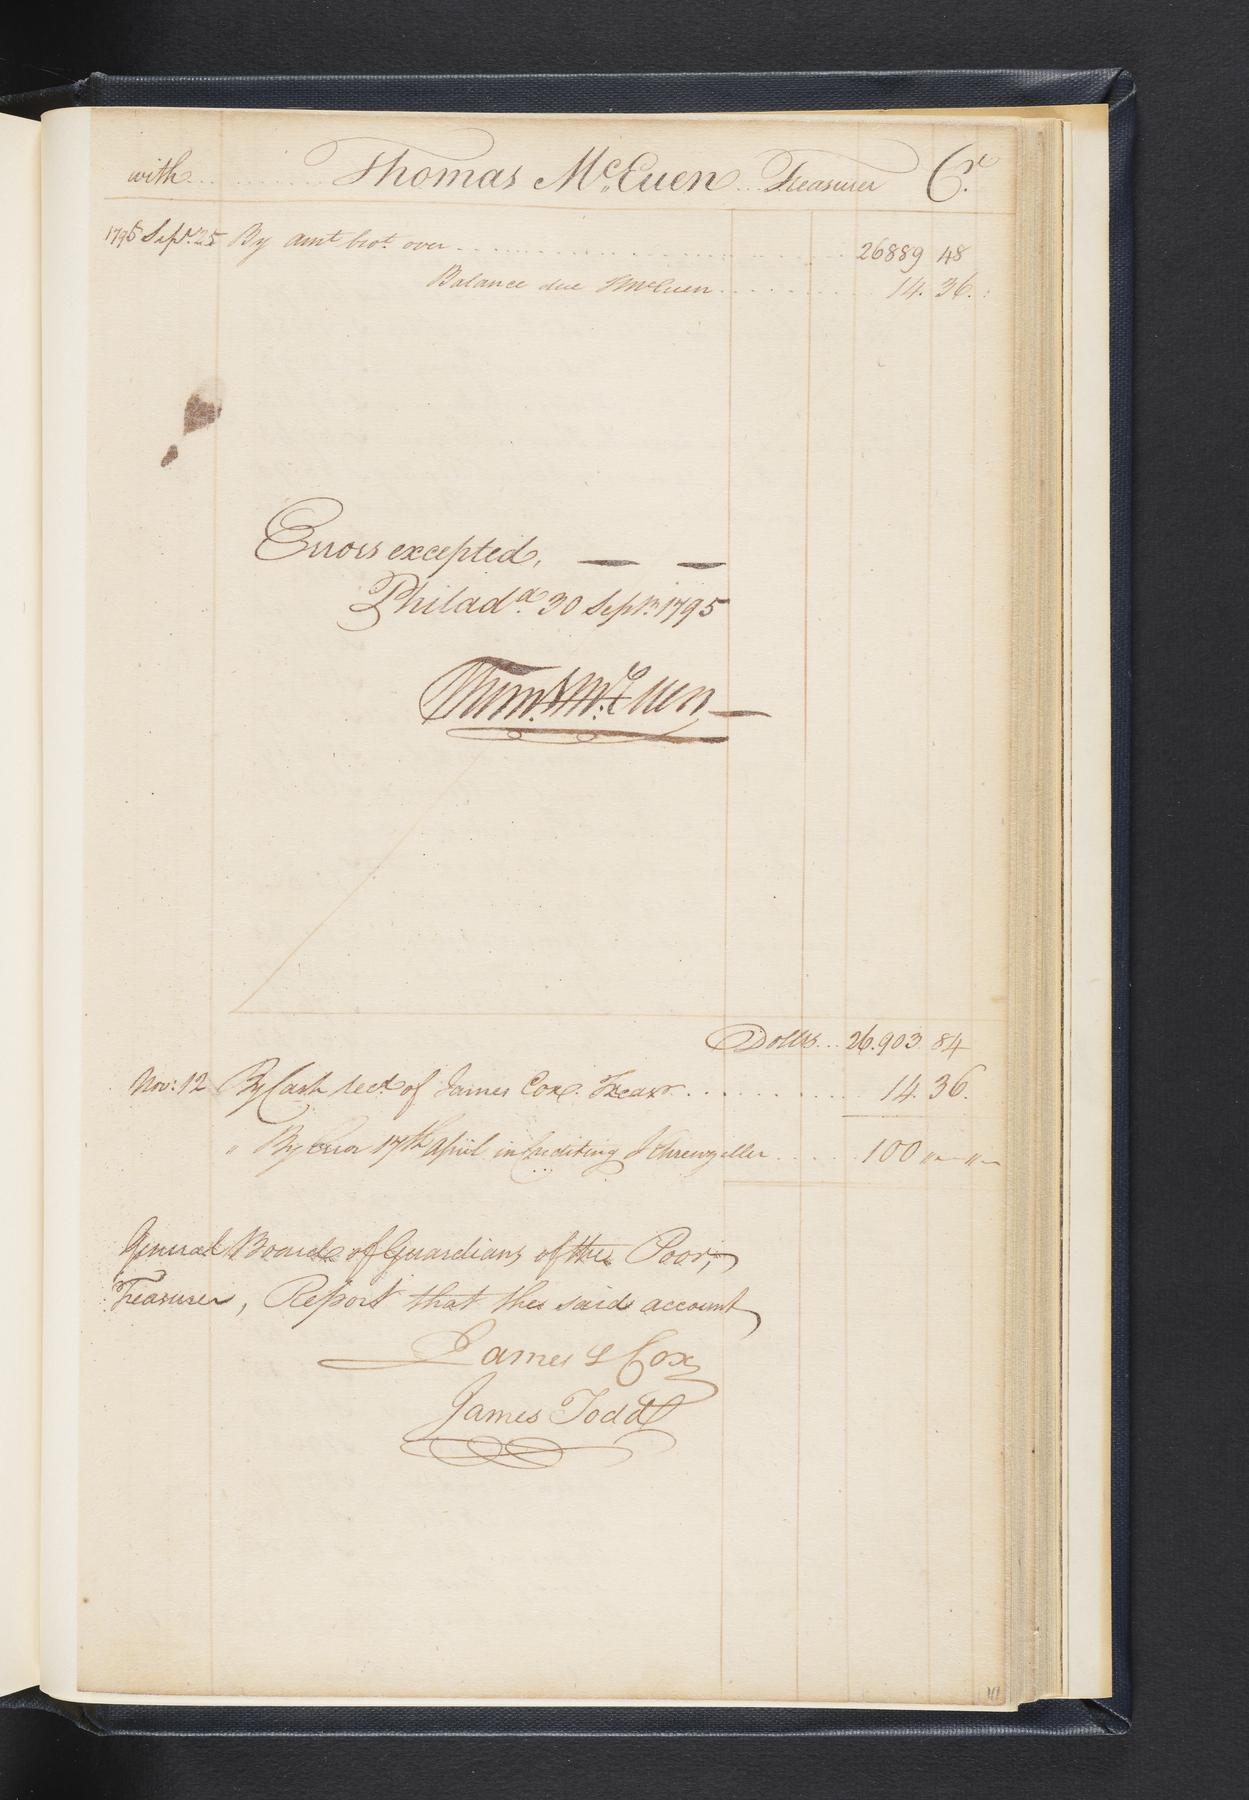 with... Thomas McEuen... Treasurer Cr.
1795 Sept. 25 By amt brot. over 26889 48
Balance due TMcEuen 14. 36.
Errors excepted,
Philada. 30 Sepr. 1795
Thom. McEuen
Dolls... 26.903 84
Nov: 12 By Cash recd. of James Cox. Treasr. 14. 36.
" By Error 17th April in Crediting 100 " "
General Board of Guardians of the Poor,
Treasurer, Report that the said account
James S Cox
James Todd